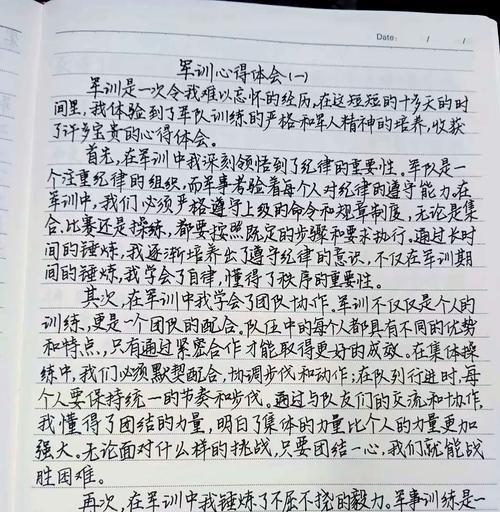 Date: / /
军训心得体会(一)
军训是一次令我难以忘怀的经历。在这短短的十多天的时
间里,我体验到了军队训练的严格和军人精神的培养,收获
了许多宝贵的心得体会。
首先,在军训中我深刻领悟到了纪律的重要性。军队是一
个注重纪律的组织,而军事考验着每个人对纪律的遵守能力。在
军训中,我们必须严格遵守上级的命令和规章制度,无论是集
合、比赛还是操练,都要按照既定的步骤和要求执行。通过长时
间的锤炼,我逐渐培养出了遵守纪律的意识,不仅在军训期
间的锤炼,我学会了自律,懂得了秩序的重要性。
其次,在军训中我学会了团队协作。军训不仅仅是个人的
训练,更是一个团队的配合。队伍中的每个人都具有不同的优势
和特点,,只有通过紧密合作才能取得更好的成效。在集体操
练中,我们必须默契配合,协调步伐和动作;在队列行进时,每
个人要保持统一的节奏和步伐。通过与队友们的交流和协作,
我懂得了团结的力量,明白了集体的力量比个人的力量更加
强大。无论面对什么样的挑战,只要团结一心,我们就能战
胜困难。
再次,在军训中我锤炼了不屈不挠的毅力。军事训练是一